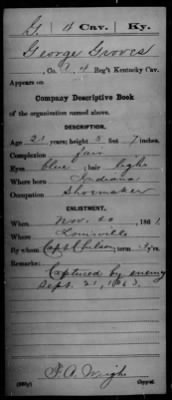 G | 4 Cav. | Ky.
George Groves
, Co. , 4 Reg't Kentucky Cav.
Appears on
Company Descriptive Book
of the organization named above.
DESCRIPTION.
Age 21 years; height 5 feet 7 inches.
Complexion fair
Eyes blue; hair light
Where born Indiana
Occupation Shoemaker
ENLISTMENT.
When Nov. 20, 1861
Where Louisville
By whom Capt Chilson; term 3 y'rs.
Remarks:
Captured by enemy
Sept. 21, 1863.
Wright
Copyist.